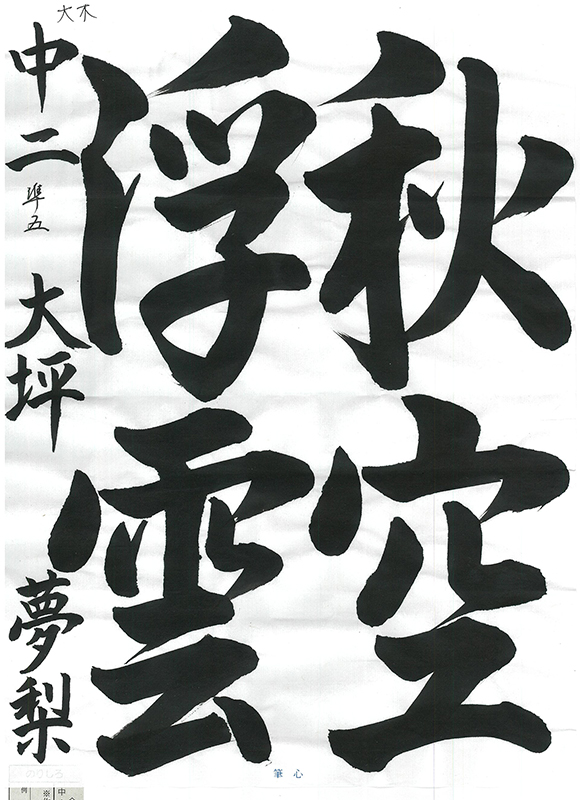 秋空
浮雲
中二 準五 大坪 夢梨
大木
筆心
のりしろ